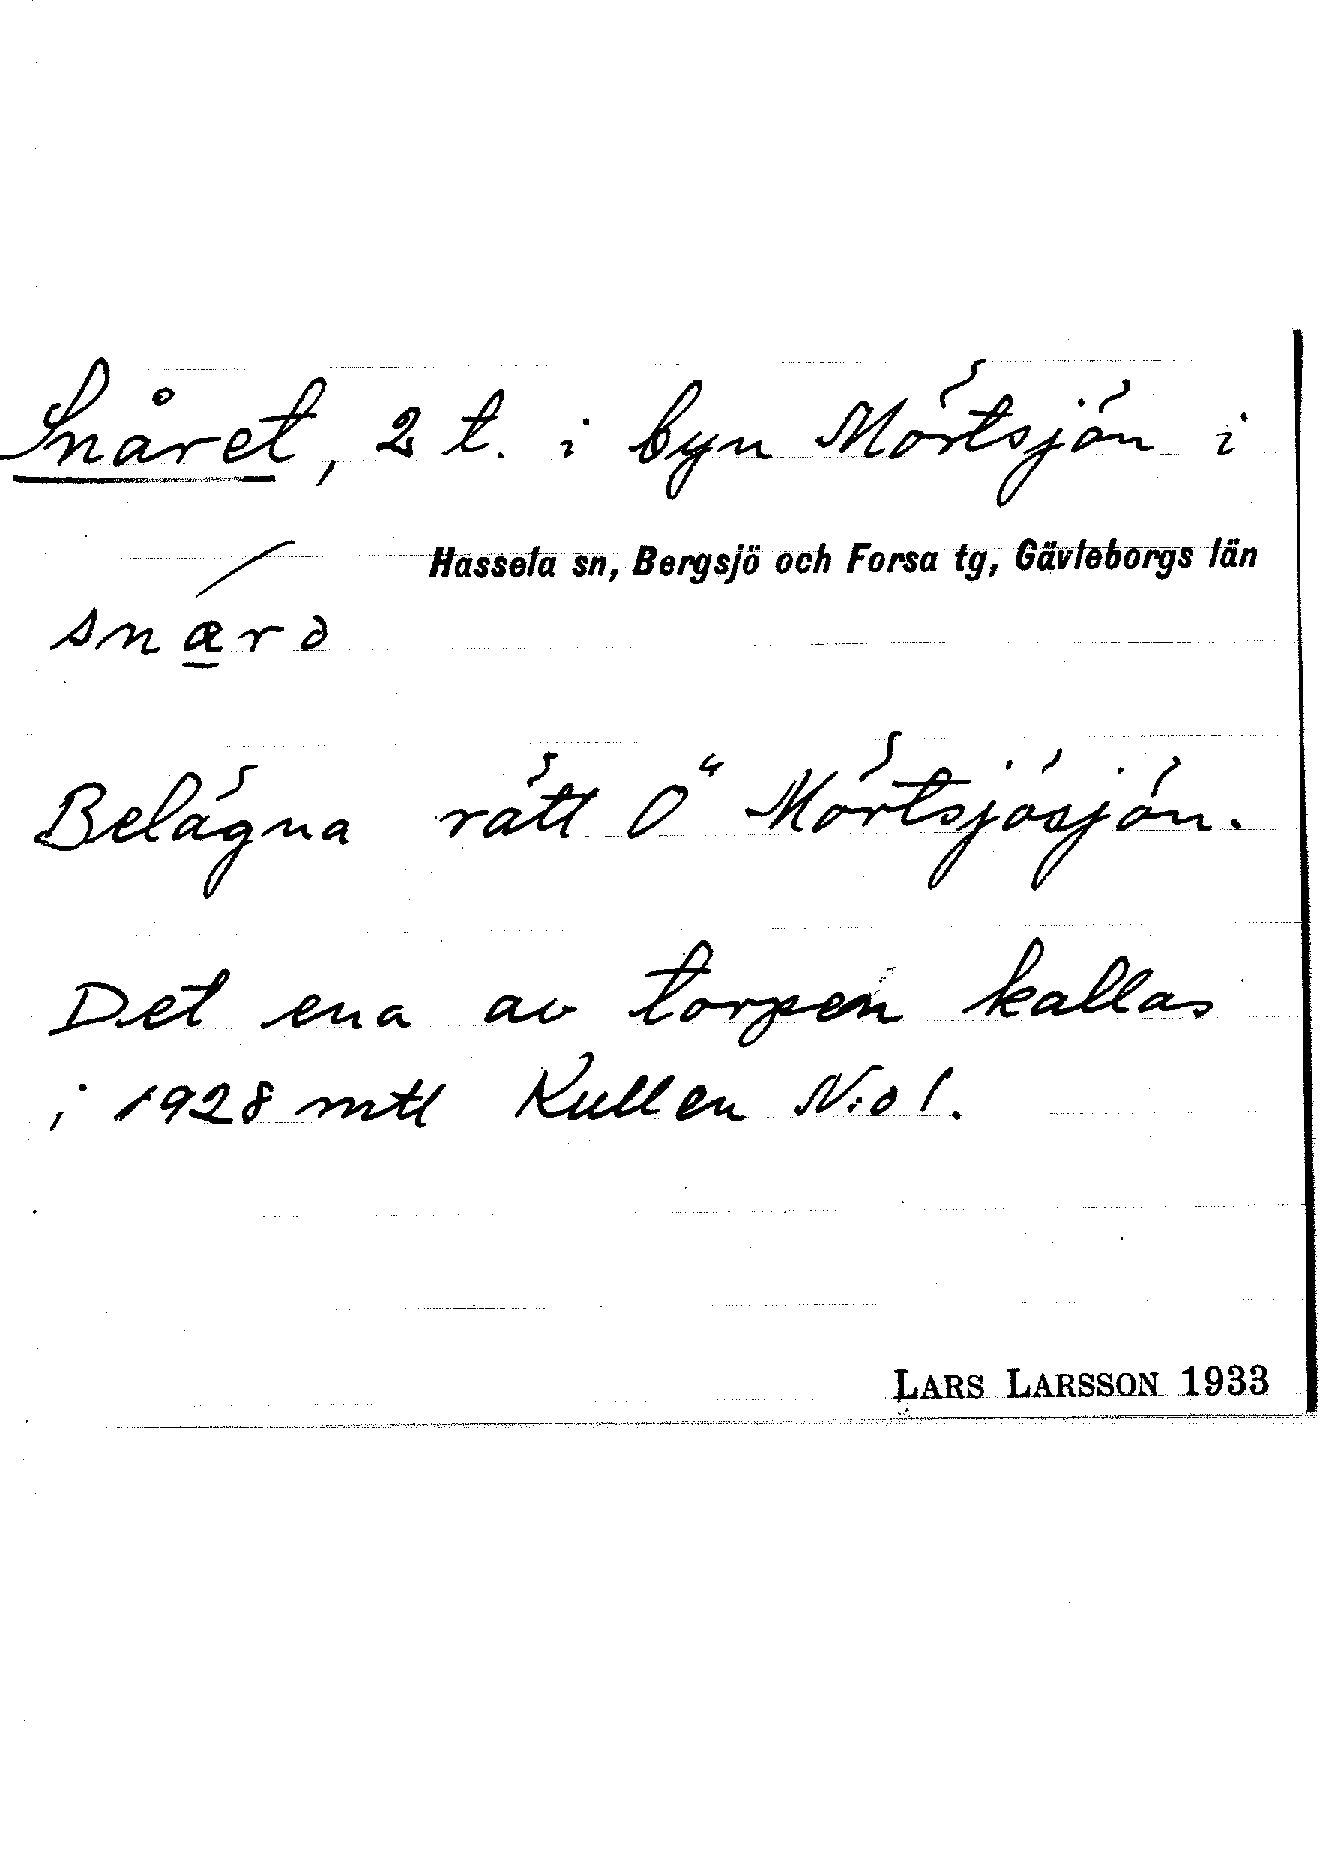 Snåret, 2 t. i byn Mörtsjön i
Hassela sn, Bergsjö och Forsa tg, Gävleborgs län
Belägna rätt Ö" Mörtsjösjön.
Det ena av torpen kallas
i 1928 mtl Kullen N:o 1.
LARS LARSSON 1933